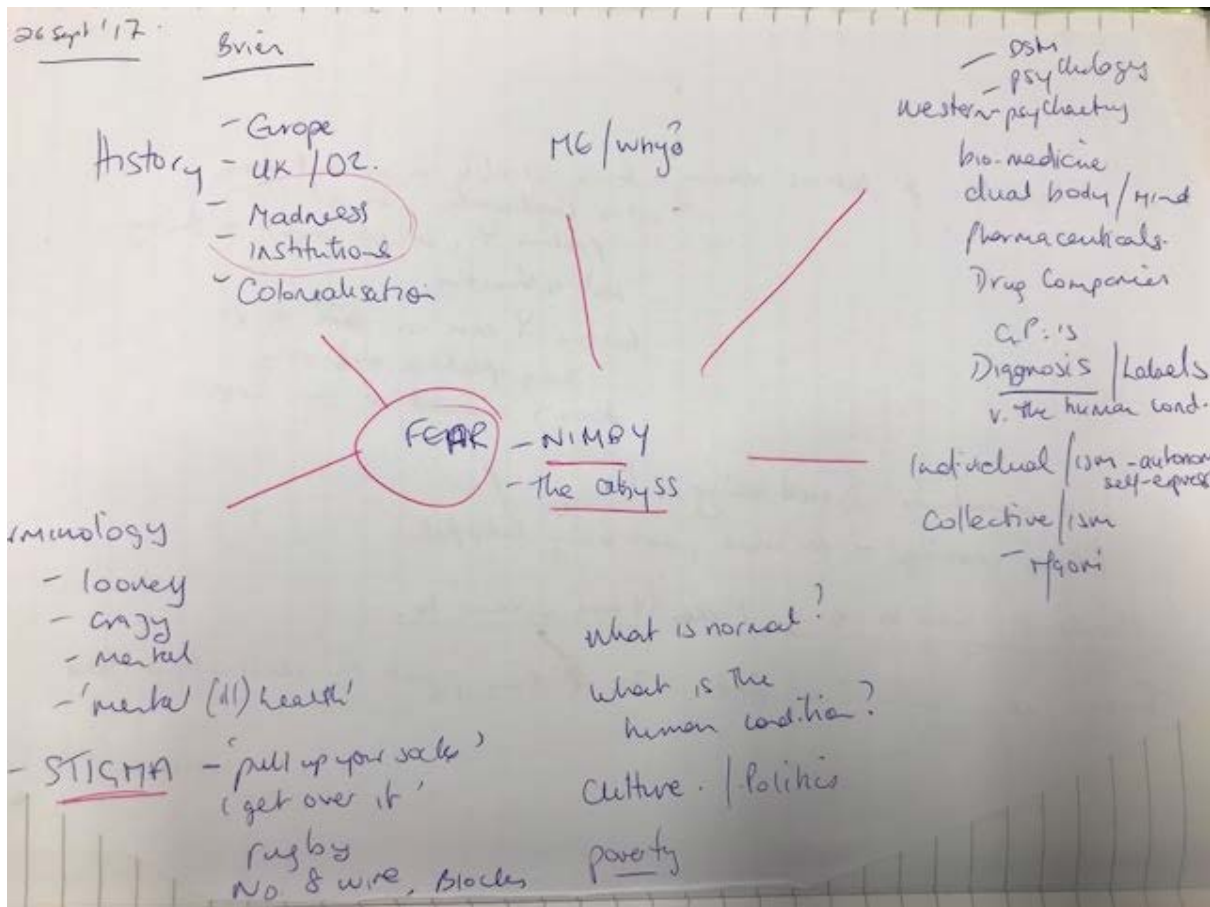 26 Sept '17.
Brian
History
- Europe
- UK / OZ.
- Madness
- institutions
- Colonialisation
ME / why?
- DSM
- psychology
Western psychiatry
bio-medicine
dual body / Mind
Pharmaceuticals.
Drug Companies
G.P.'s
Diagnosis / Labels
v. the human cond.
Individual / ism - autonom
self-express
Collective / ism
- Maori
FEAR - NIMBY
- The abyss
rminology
- looney
- crazy
- mental
- 'mental (ill) health'
- STIGMA - 'pull up your socks'
'get over it'
rugby
No 8 wire, Blocks
What is normal?
What is the
human condition?
Culture. / Politics
poverty